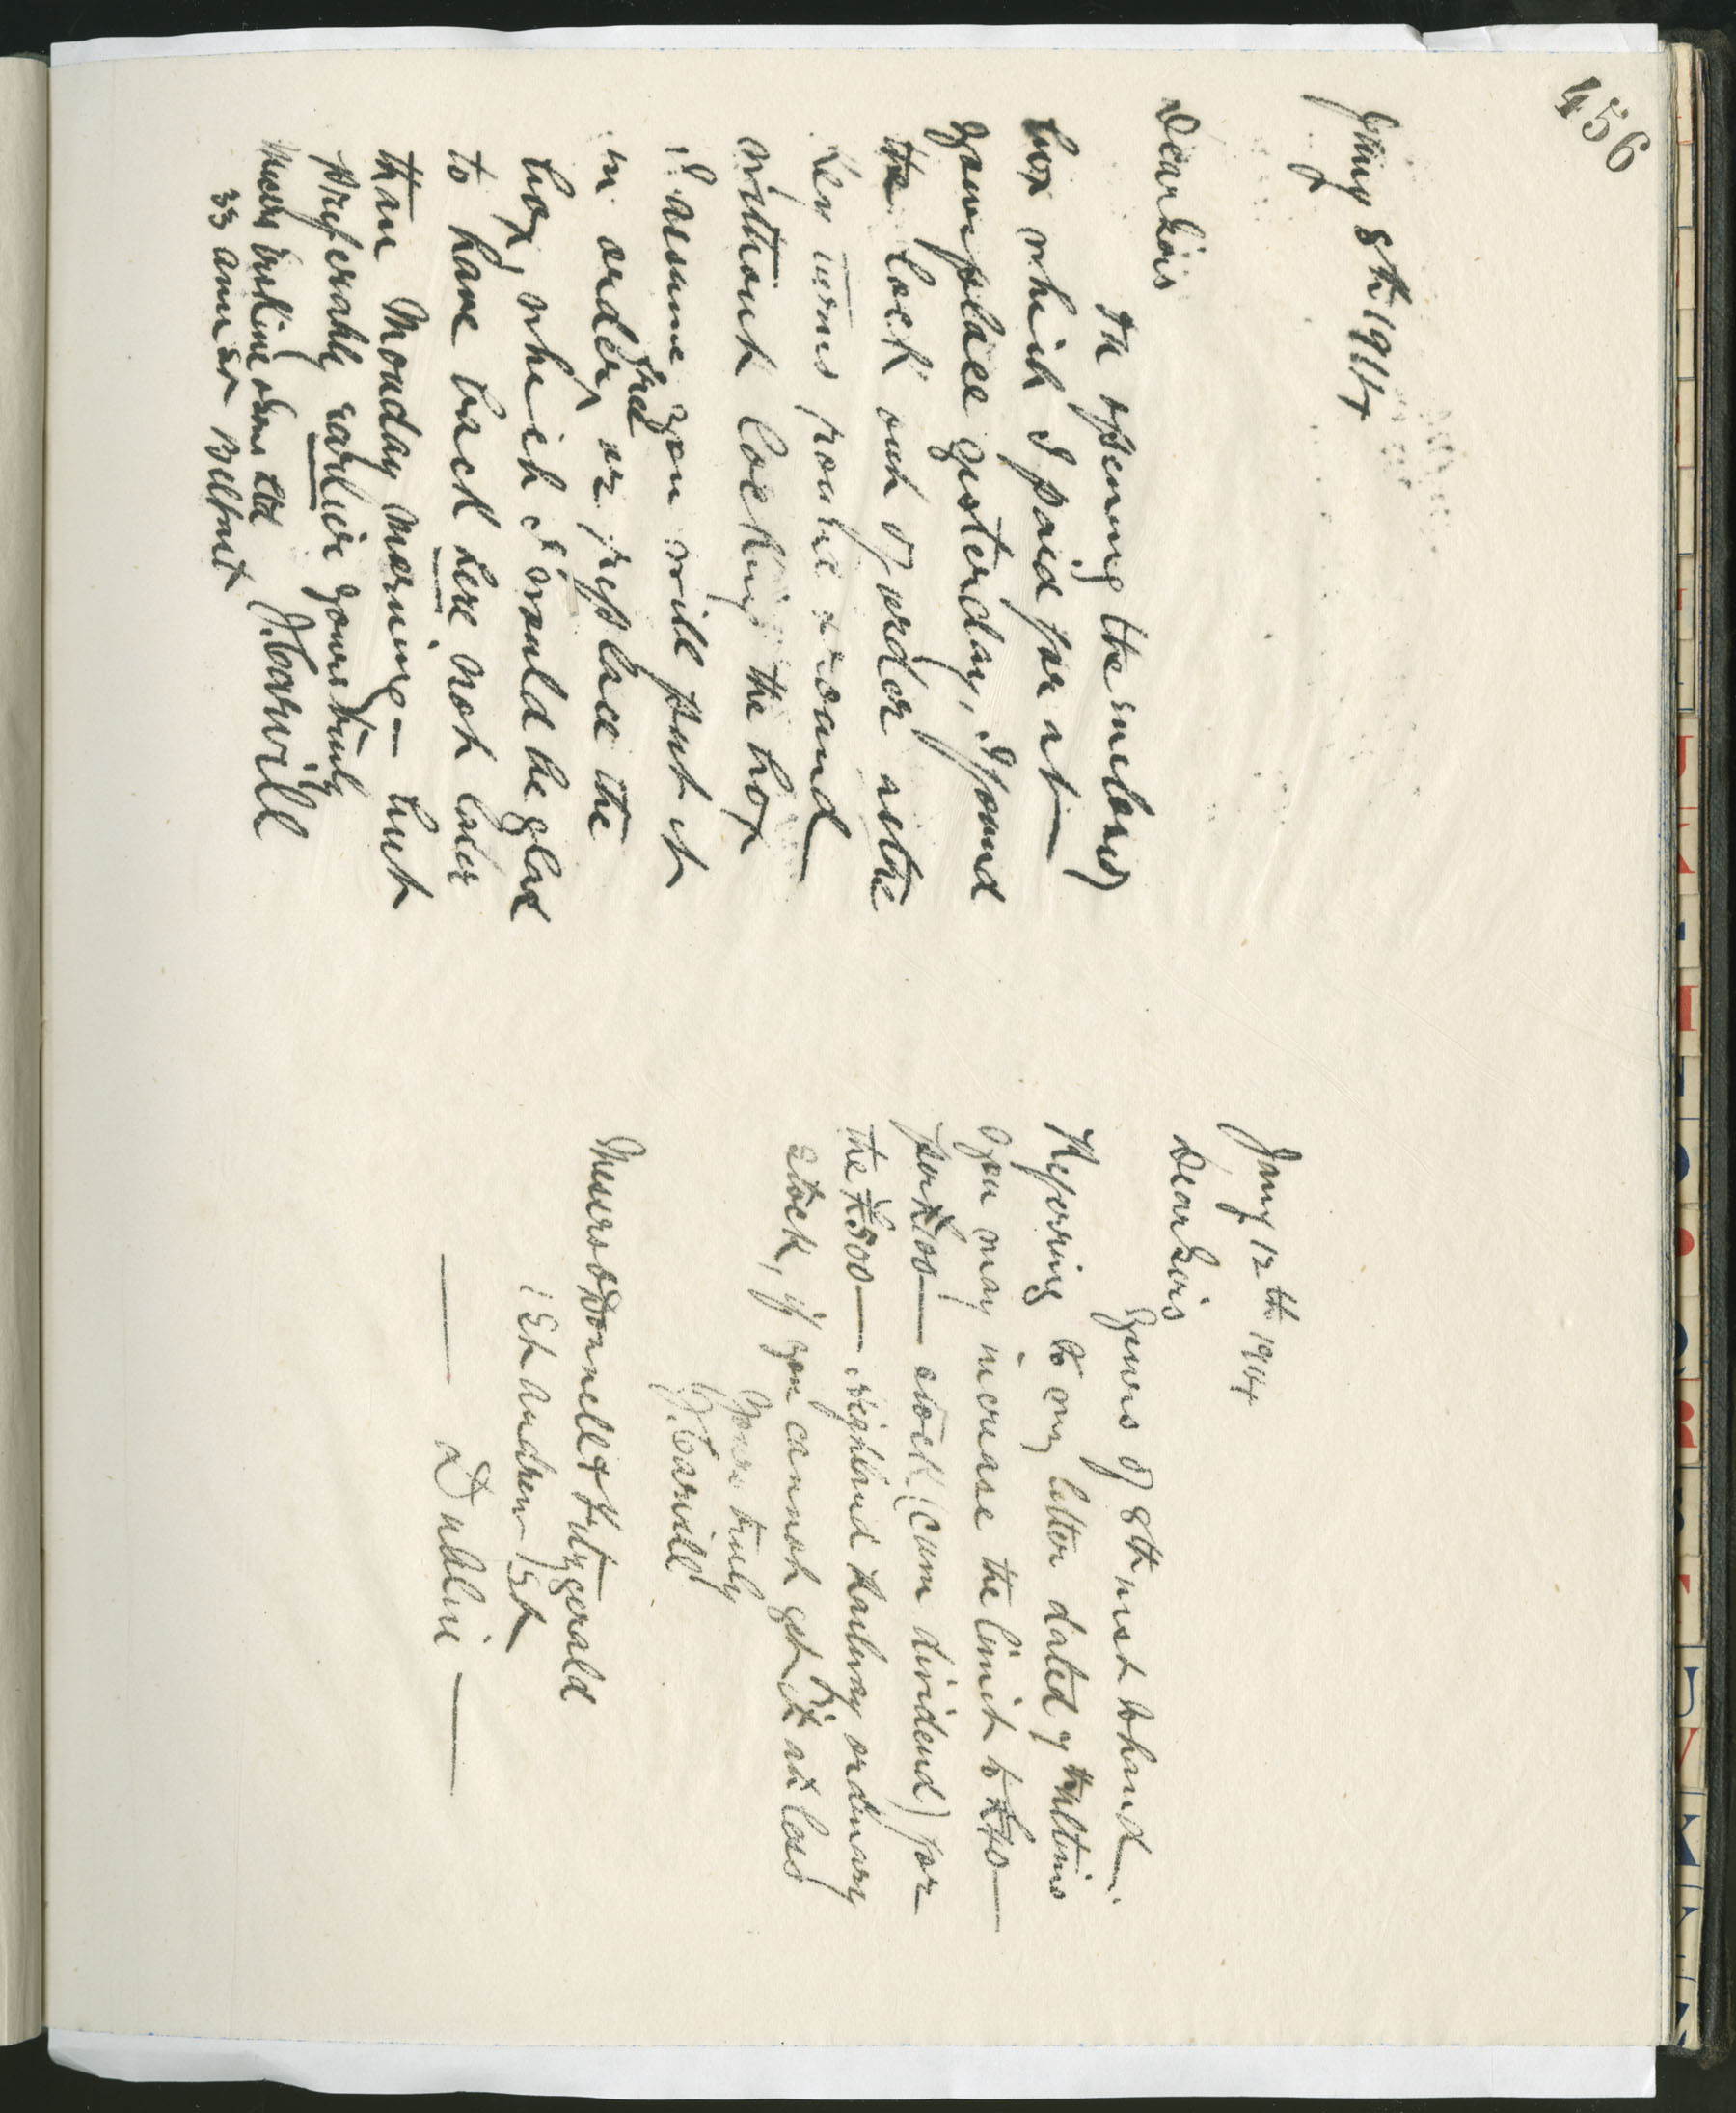 456
Jany 8th 1914
Dear Sirs
On opening the enclosed
box which I paid for at
your place yesterday, I found
the lock out of order as the
key turns round & round
without locking the box
I assume you will put it
in order, or replace the
box, which I would be glad
to have back here not later
than Monday morning — but
preferably earlier Yours truly
Messrs Ltd J. Carvill
33 Ann St Belfast
Jany 12th 1914
Dear Sirs
Yours of 8th inst to hand
Referring to my letter dated 7th ultimo
you may increase the limit to
per £100 — stock (cum dividend) for
the £500 — Highland Railway ordinary
stock, if you cannot get it at less
Yours truly
J. Carvill
Messrs O'Donnell & Fitzgerald
1 St Andrew St
Dublin